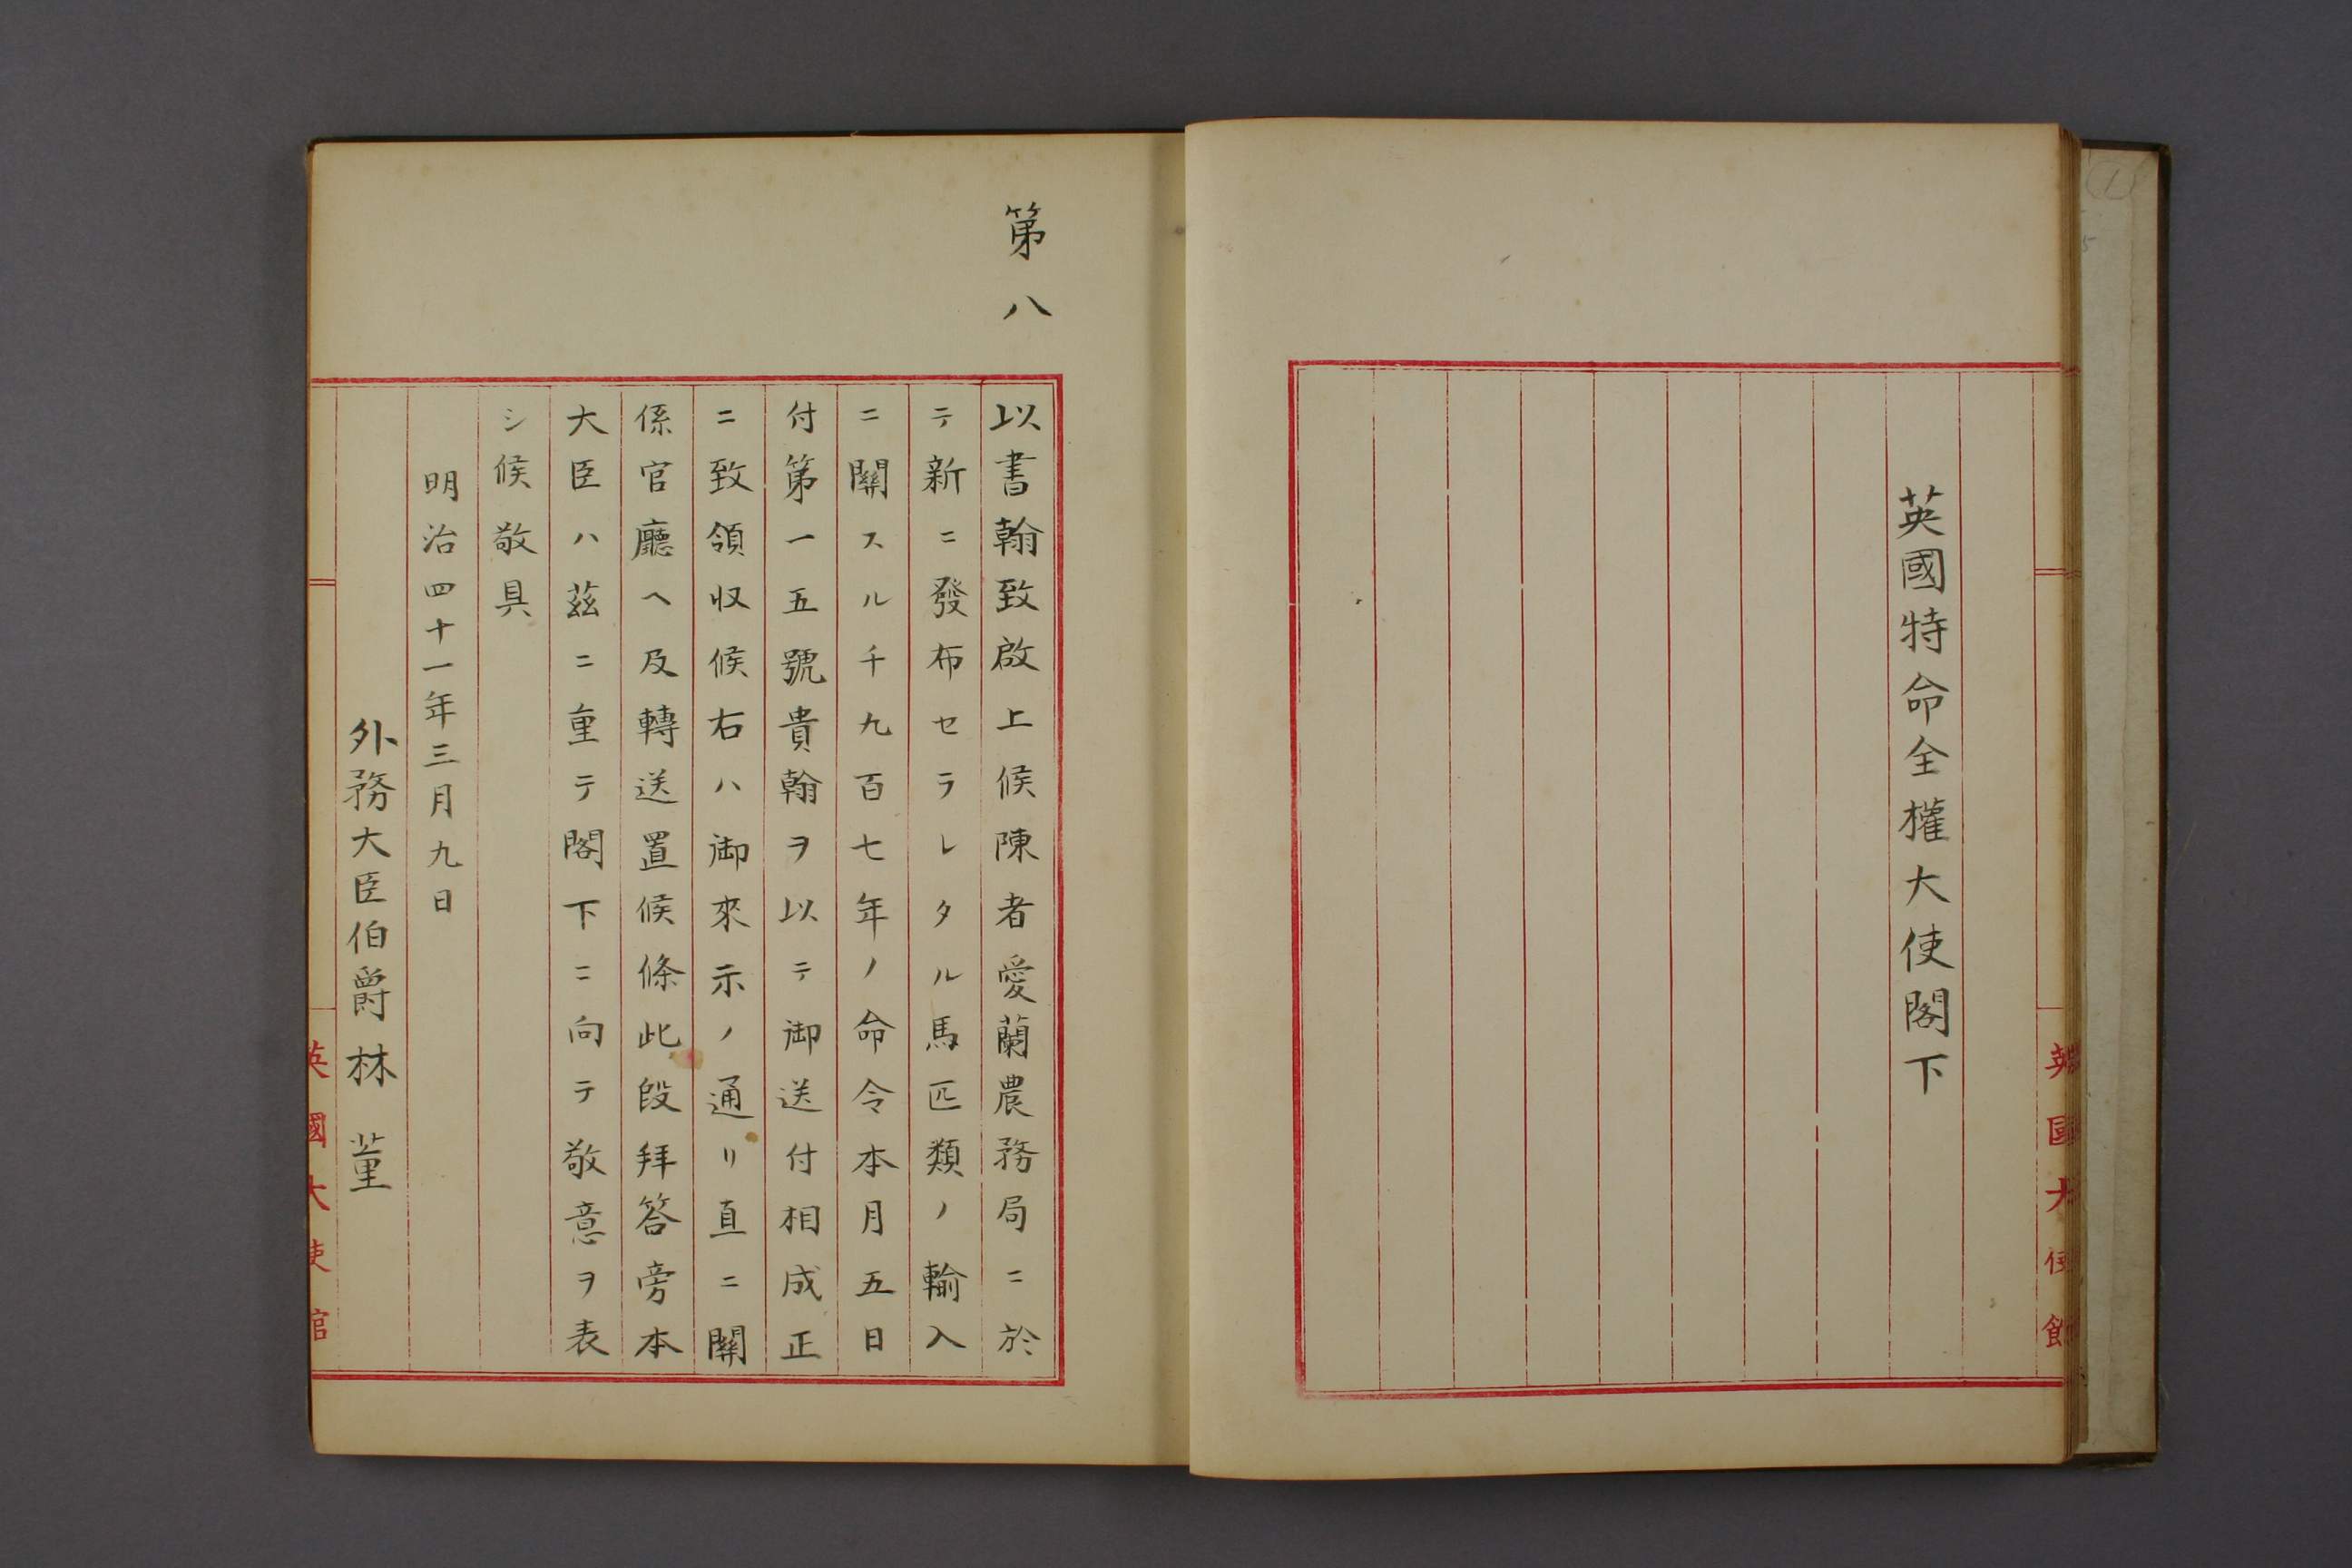 英國特命全權大使閣下
英國大使館
第八
以書翰致啟上候陳者愛蘭農務局ニ於
テ新ニ發布セラレタル馬匹類ノ輸入
ニ關スル千九百七年ノ命令本月五日
付第一五號貴翰ヲ以テ御送付相成正
ニ致領収候右ハ御來示ノ通リ直ニ關
係官廳ヘ及轉送置候條此段拜答旁本
大臣ハ茲ニ重テ閣下ニ向テ敬意ヲ表
シ候敬具
明治四十一年三月九日
外務大臣伯爵林董
英國大使館